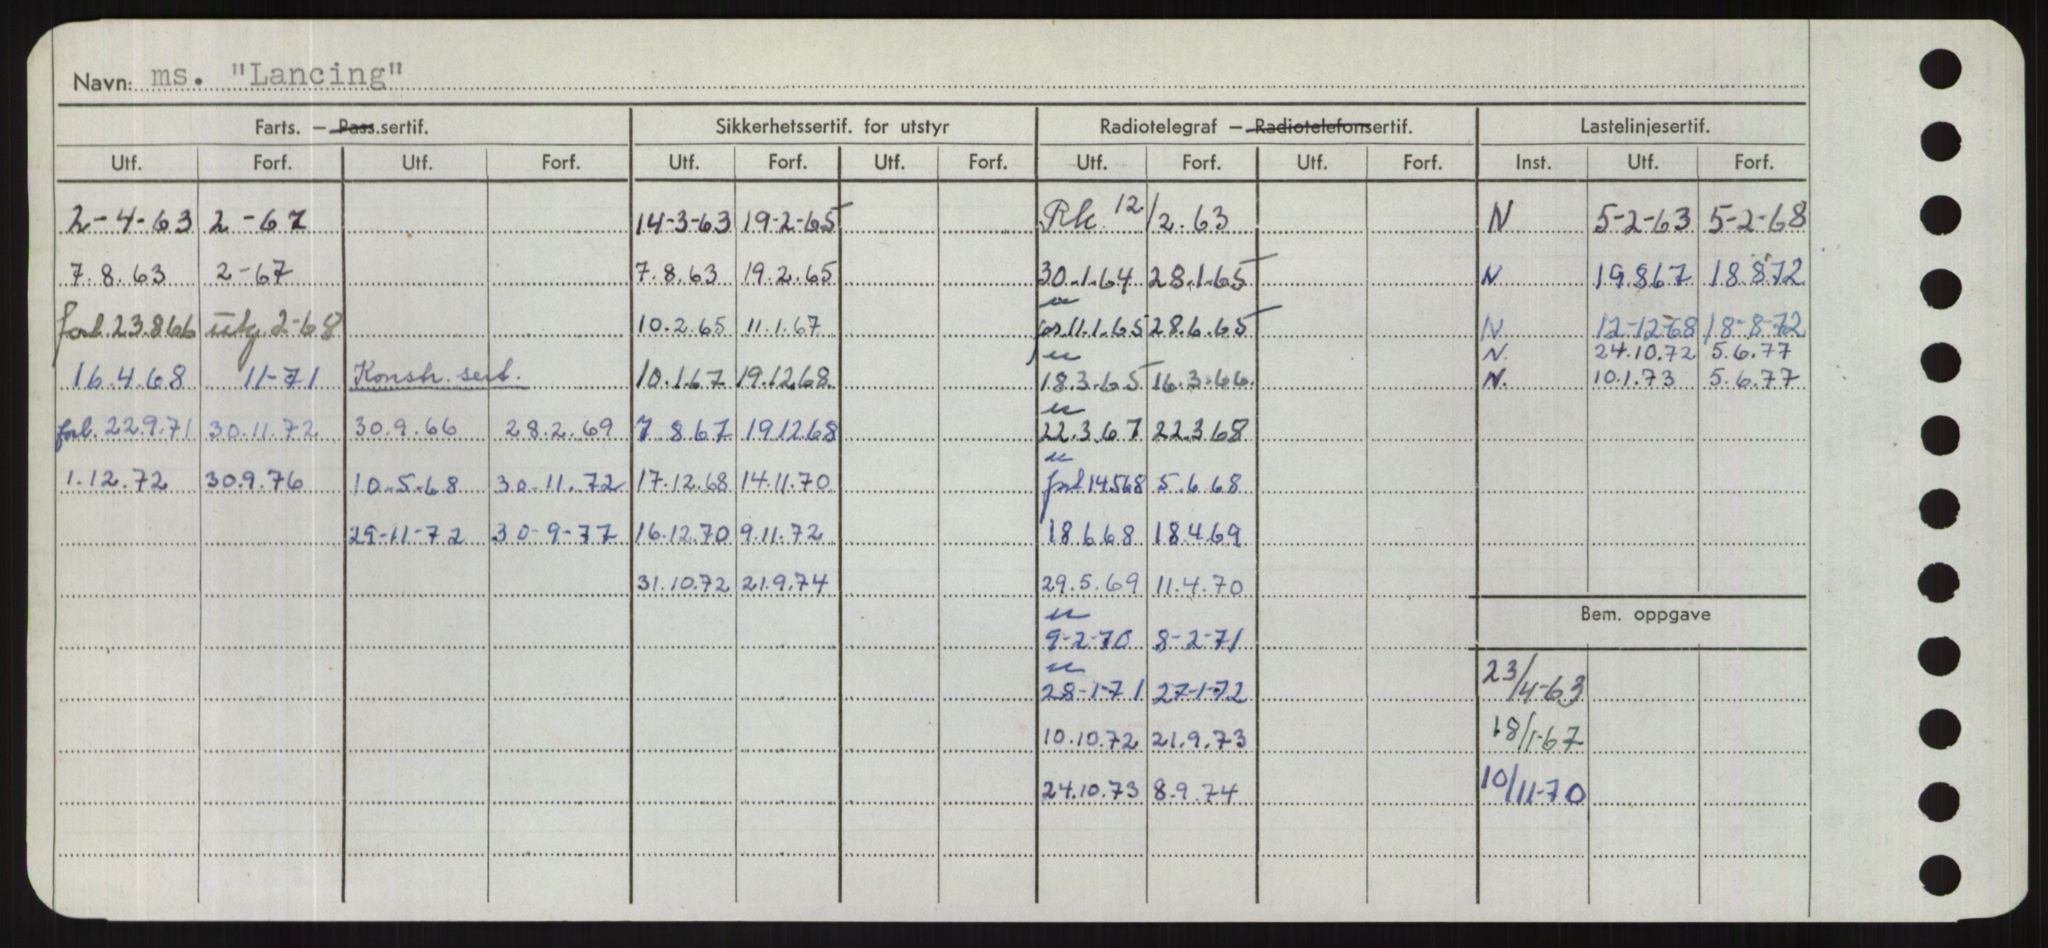 Navn: ms. "Lancing"
Farts. — Pass.sertif. Sikkerhetssertif. for utstyr Radiotelegraf — Radiotelefonsertif. Lastelinjesertif.
Utf. Forf. Utf. Forf. Utf. Forf. Utf. Forf. Utf. Forf. Utf. Forf. Inst. Utf. Forf.
2-4-63 2-67 14-3-63 19-2-65 Rk. 12/2.63 N 5-2-63 5-2-68
7.8.63 2-67 7.8.63 19.2.65 30.1.64 28.1.65 N 19.8.67 18.8.72
forl. 23.8.66 utg 2-68 10.2.65 11.1.67 11.1.65 28.6.65 N 12-12-68 18-8-72
N. 24.10.72 5.6.77
16.4.68 11-71 Konstr. sert. 10.1.67 19.12.68 18.3.65 16.3.66. N. 10.1.73 5.6.77
forl. 22.9.71 30.11.72 30.9.66 28.2.69 7 8.67 19.12.68 22.3.67 22.3.68
1.12.72 30.9.76 10.5.68 30.11.72 17.12.68 14.11.70 forl 14.5.68 5.6.68
29-11-72 30-9-77 16.12.70 9.11.72 18.6.68 18.4.69
31.10.72 21.9.74 29.5.69 11.4.70
Bem. oppgave
9-2-70 8-2-71
28-1-71 27-1-72 23/4-63
10.10.72 21.9.73 18/1-67
24.10.73 8.9.74 10/11-70